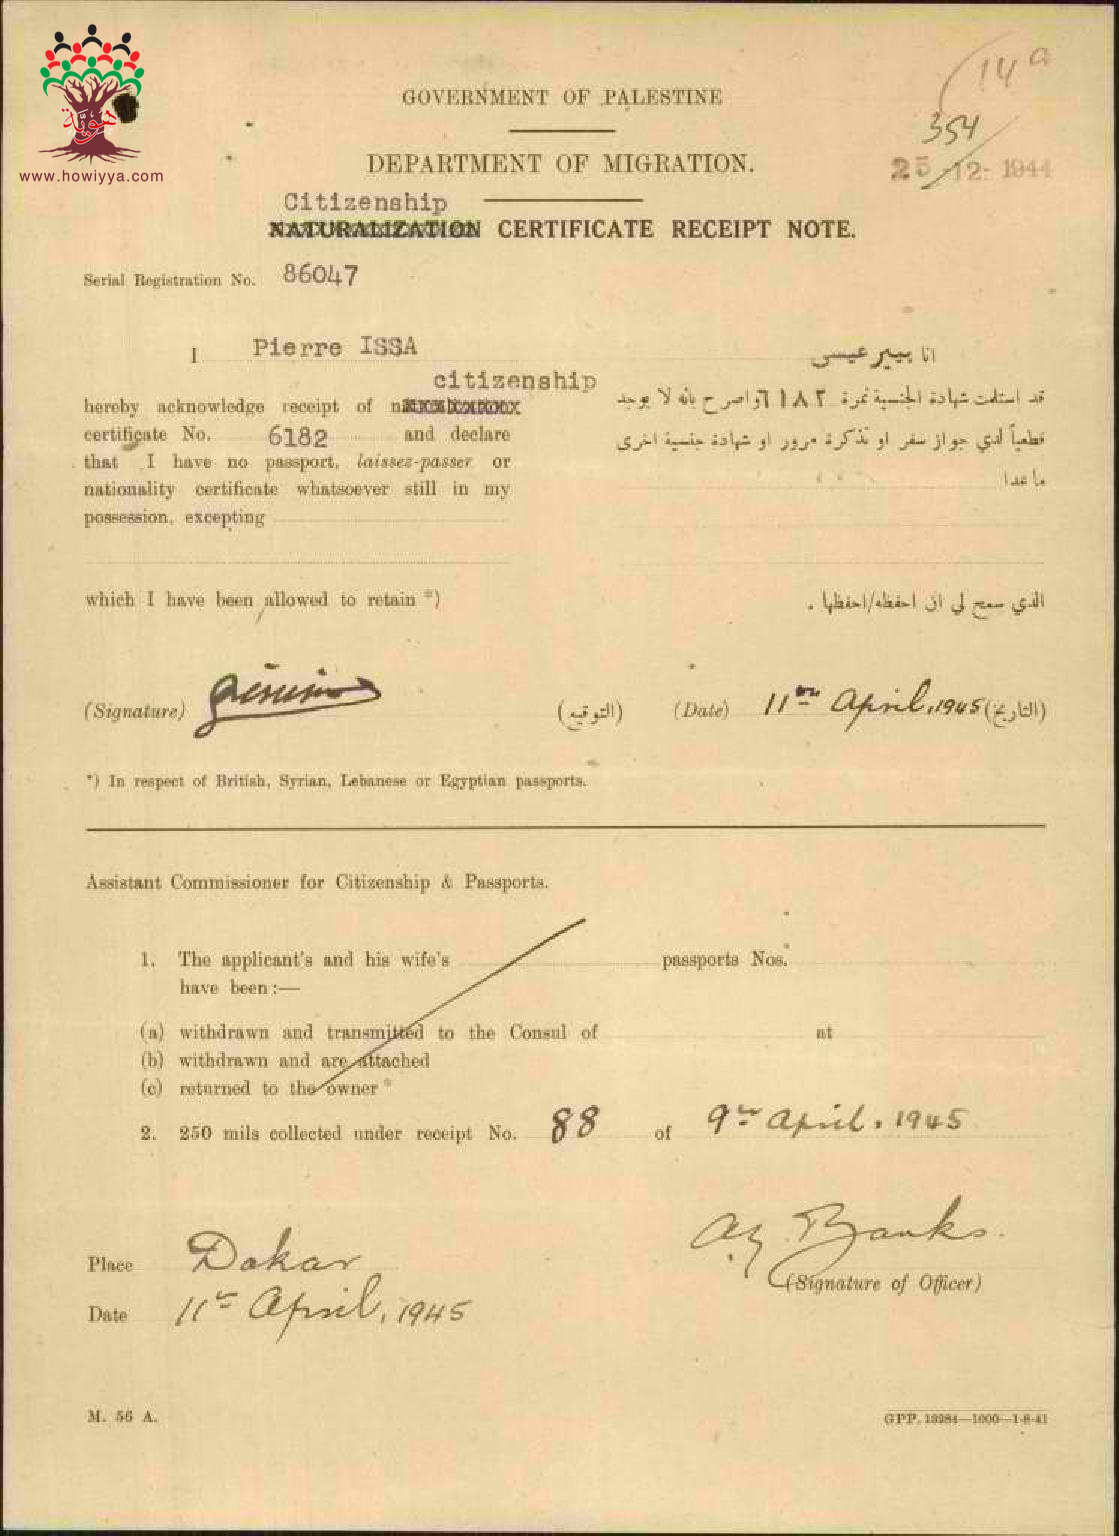 هوية
www.howiyya.com
14 a
354
25-12-1944
GOVERNMENT OF PALESTINE
DEPARTMENT OF MIGRATION.
Citizenship
NATURALIZATION CERTIFICATE RECEIPT NOTE.
Serial Registration No. 86047
I Pierre ISSA
citizenship
hereby acknowledge receipt of
certificate No. 6182 and declare
that I have no passport, laissez-passer or
nationality certificate whatsoever still in my
possession, excepting
which I have been allowed to retain *)
انا بيير عيسى
قد استلمت شهادة الجنسية نمرة ٦١٨٢ واصرح بانه لا يوجد
قطعياً لدي جواز سفر او تذكرة مرور او شهادة جنسية اخرى
ما عدا
الذي سمح لي ان احفظه/احفظها .
(Signature) (التوقيع) (Date) 11th April, 1945 (التاريخ)
*) In respect of British, Syrian, Lebanese or Egyptian passports.
Assistant Commissioner for Citizenship & Passports.
1. The applicant's and his wife's passports Nos.
have been :—
(a) withdrawn and transmitted to the Consul of at
(b) withdrawn and are attached
(c) returned to the owner *
2. 250 mils collected under receipt No. 88 of 9th April. 1945
Banks.
(Signature of Officer)
Place Dakar
Date 11th April, 1945
M. 56 A.
GPP. 13284—1000—1-8-41